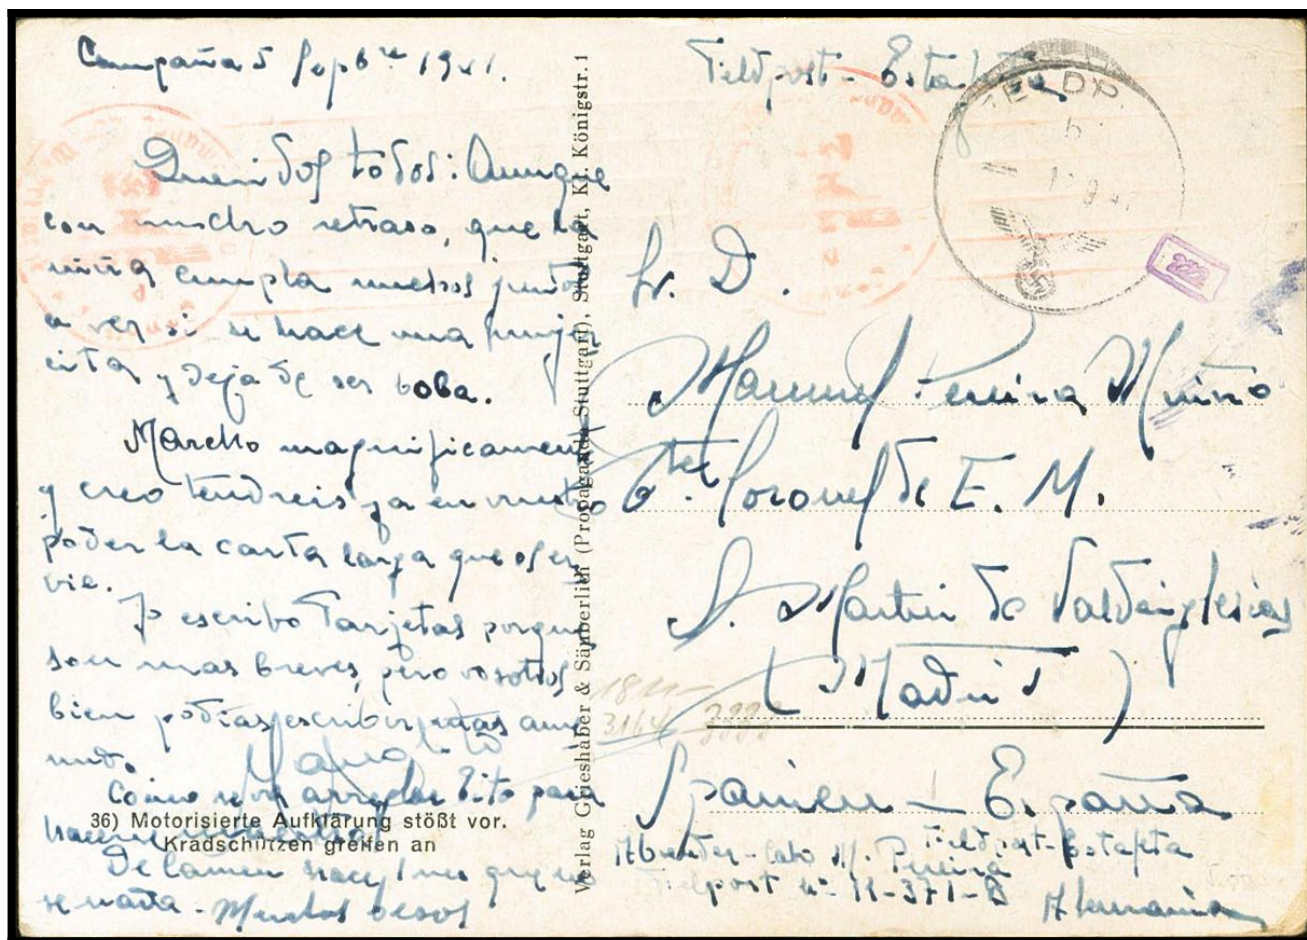 Campaña 5 Sepbre 1941.
Queridos todos: Aunque
con mucho retraso, que la
niña cumpla muchos junto
a ver si se hace una
y deja de ser boba.
Marcho magnificamente
y creo tendreis ya en vuestro
poder la carta larga que os en
vie.
Yo escribo Tarjetas porque
son mas breves, pero vosotros
bien podias escribir mas ame
nudo.
Como se va arreglar Tito para
hacerse
De Carmen hace que no
se nada - Muchos besos
Manolito
36) Motorisierte Aufklärung stößt vor.
Kradschützen greifen an
Verlag Grieshaber & Säuberlich (Propaganda Stuttgart), Stuttgart, Kl. Königstr. 1
Feldpost - Estafeta
FELDP.
b
222
Sr. D.
Manuel Pereira Muiño
Tte. Coronel de E. M.
S. Martin de Valdeiglesias
(Madrid)
3164
Spanien - España
Absender - Cabo M. Pereira
Feldpost - Estafeta
Feldpost nº
Alemania